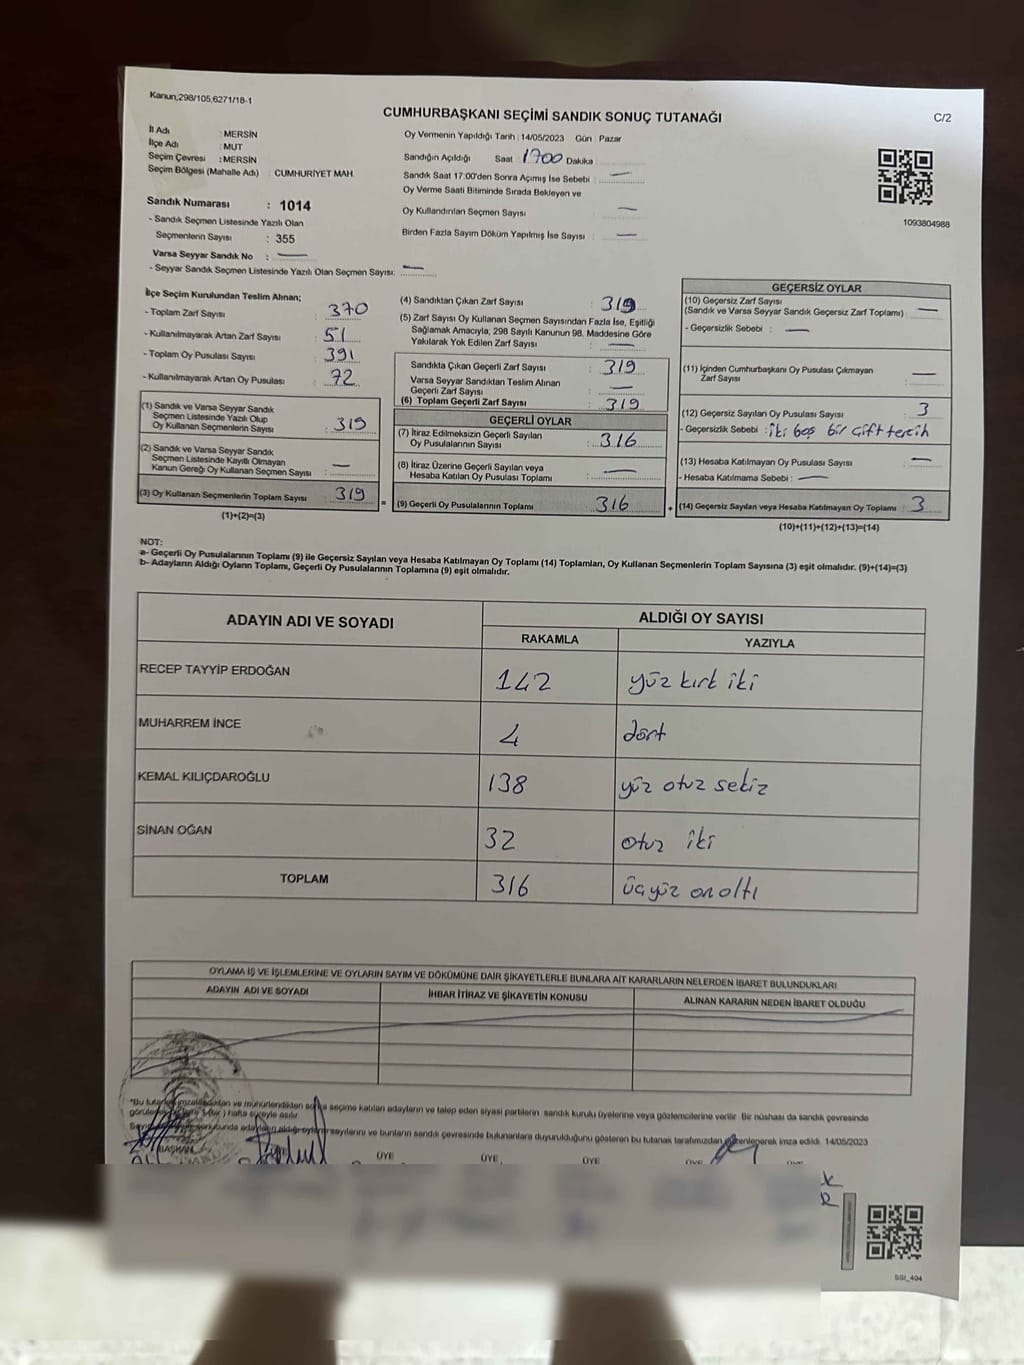 Kanun,298/105,6271/18-1
CUMHURBAŞKANI SEÇİMİ SANDIK SONUÇ TUTANAĞI
C/2
İl Adı : MERSİN
İlçe Adı : MUT
Seçim Çevresi : MERSİN
Seçim Bölgesi (Mahalle Adı) : CUMHURİYET MAH.
Oy Vermenin Yapıldığı Tarih : 14/05/2023 Gün : Pazar
Sandığın Açıldığı Saat 1700 Dakika :
Sandık Saat 17:00'den Sonra Açmış İse Sebebi : —
Oy Verme Saati Bitiminde Sırada Bekleyen ve
Oy Kullandırılan Seçmen Sayısı : —
Birden Fazla Sayım Döküm Yapılmış İse Sayısı : —
1093804988
Sandık Numarası : 1014
- Sandık Seçmen Listesinde Yazılı Olan
Seçmenlerin Sayısı : 355
Varsa Seyyar Sandık No : —
- Seyyar Sandık Seçmen Listesinde Yazılı Olan Seçmen Sayısı: —
İlçe Seçim Kurulundan Teslim Alınan;
- Toplam Zarf Sayısı : 370
- Kullanılmayarak Artan Zarf Sayısı : 51
- Toplam Oy Pusulası Sayısı : 391
- Kullanılmayarak Artan Oy Pusulası : 72
(1) Sandık ve Varsa Seyyar Sandık
Seçmen Listesinde Yazılı Olup
Oy Kullanan Seçmenlerin Sayısı : 319
(2) Sandık ve Varsa Seyyar Sandık
Seçmen Listesinde Kayıtlı Olmayan
Kanun Gereği Oy Kullanan Seçmen Sayısı : —
(3) Oy Kullanan Seçmenlerin Toplam Sayısı : 319
(1)+(2)=(3)
(4) Sandıktan Çıkan Zarf Sayısı : 319
(5) Zarf Sayısı Oy Kullanan Seçmen Sayısından Fazla İse, Eşitliği
Sağlamak Amacıyla, 298 Sayılı Kanunun 98. Maddesine Göre
Yakılarak Yok Edilen Zarf Sayısı : —
Sandıkta Çıkan Geçerli Zarf Sayısı : 319
Varsa Seyyar Sandıktan Teslim Alınan
Geçerli Zarf Sayısı : —
(6) Toplam Geçerli Zarf Sayısı : 319
GEÇERLİ OYLAR
(7) İtiraz Edilmeksizin Geçerli Sayılan
Oy Pusulalarının Sayısı : 316
(8) İtiraz Üzerine Geçerli Sayılan veya
Hesaba Katılan Oy Pusulası Toplamı : —
= (9) Geçerli Oy Pusulalarının Toplamı : 316
GEÇERSİZ OYLAR
(10) Geçersiz Zarf Sayısı
(Sandık ve Varsa Seyyar Sandık Geçersiz Zarf Toplamı) : —
- Geçersizlik Sebebi : —
(11) İçinden Cumhurbaşkanı Oy Pusulası Çıkmayan
Zarf Sayısı : —
(12) Geçersiz Sayılan Oy Pusulası Sayısı : 3
- Geçersizlik Sebebi : iki boş bir çift tercih
(13) Hesaba Katılmayan Oy Pusulası Sayısı : —
- Hesaba Katılmama Sebebi : —
+ (14) Geçersiz Sayılan veya Hesaba Katılmayan Oy Toplamı : 3
(10)+(11)+(12)+(13)=(14)
NOT:
a- Geçerli Oy Pusulalarının Toplamı (9) ile Geçersiz Sayılan veya Hesaba Katılmayan Oy Toplamı (14) Toplamları, Oy Kullanan Seçmenlerin Toplam Sayısına (3) eşit olmalıdır. (9)+(14)=(3)
b- Adayların Aldığı Oyların Toplamı, Geçerli Oy Pusulalarının Toplamına (9) eşit olmalıdır.
ADAYIN ADI VE SOYADI ALDIĞI OY SAYISI
RAKAMLA YAZIYLA
RECEP TAYYİP ERDOĞAN 142 yüz kırk iki
MUHARREM İNCE 4 dört
KEMAL KILIÇDAROĞLU 138 yüz otuz sekiz
SİNAN OĞAN 32 otuz iki
TOPLAM 316 üçyüz onaltı
OYLAMA İŞ VE İŞLEMLERİNE VE OYLARIN SAYIM VE DÖKÜMÜNE DAİR ŞİKAYETLERLE BUNLARA AİT KARARLARIN NELERDEN İBARET BULUNDUKLARI
ADAYIN ADI VE SOYADI İHBAR İTİRAZ VE ŞİKAYETİN KONUSU ALINAN KARARIN NEDEN İBARET OLDUĞU
"Bu ve mühürlendikten seçime katılan adayların ve talep eden siyasi partilerin sandık kurulu üyelerine veya gözlemcilerine verilir. Bir nüshası da sandık çevresinde
hafta süreyle asılır.
sayılarını ve bunların sandık çevresinde bulunanlara duyurulduğunu gösteren bu tutanak tarafımızdan düzenlenerek imza edildi. 14/05/2023
BAŞKAN ÜYE ÜYE ÜYE
SSI_404